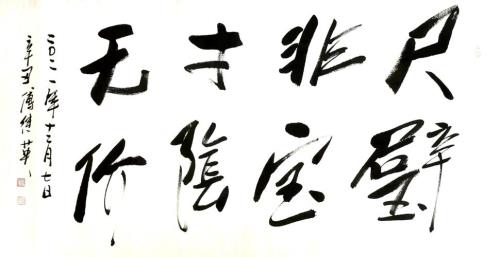 尺璧
非宝
寸陰
无价
二〇二一年十二月七日
辛丑